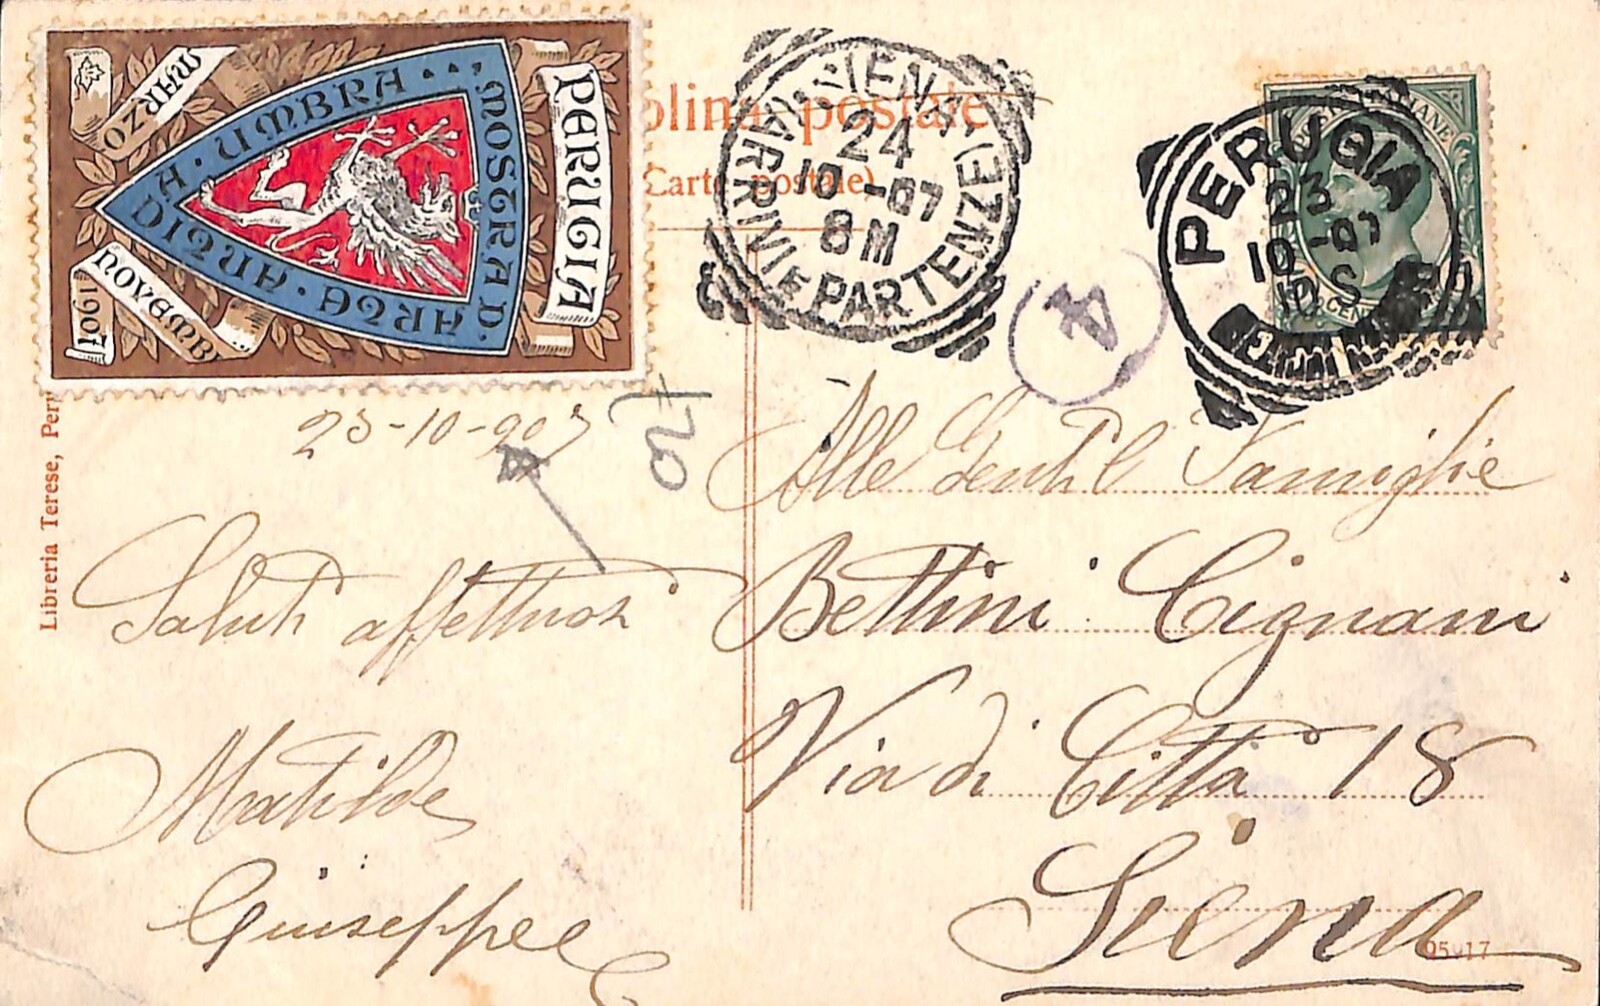 PERUGIA
MOSTRA D'ARTE
ANTICA UMBRA
MARZO
NOVEMBR
1907
olina postale
(Carte postale)
SIENA
24
10-07
8M
ARRIVI E PARTENZE
4
PERUGIA
23
10-07
10 S
CEN
Libreria Terese, Per
23-10-907
Saluti affettuosi
Matilde
Giuseppe
Alle Gentil Famiglie
Bettini Cignani
Via di Città 18
Siena
95017